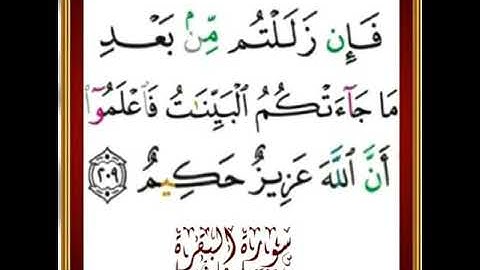 فَإِن زَلَلْتُم مِّنۢ بَعْدِ
مَا جَآءَتْكُمُ ٱلْبَيِّنَٰتُ فَٱعْلَمُوٓا۟
أَنَّ ٱللَّهَ عَزِيزٌ حَكِيمٌ ٢٠٩
سورة البقرة